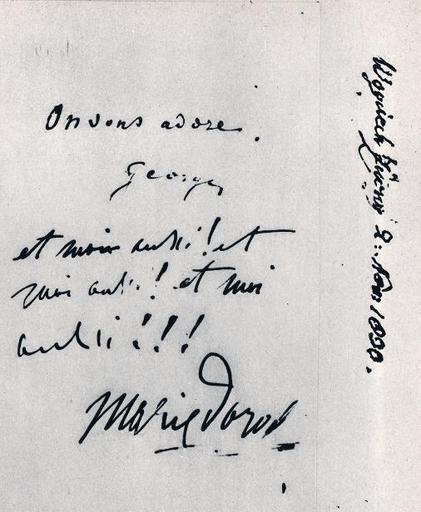 On vous adore.
George
et moi aussi! et
moi aussi! et moi
aussi!!!
Marie Dorval
Woyciech 2. Nov 1830.